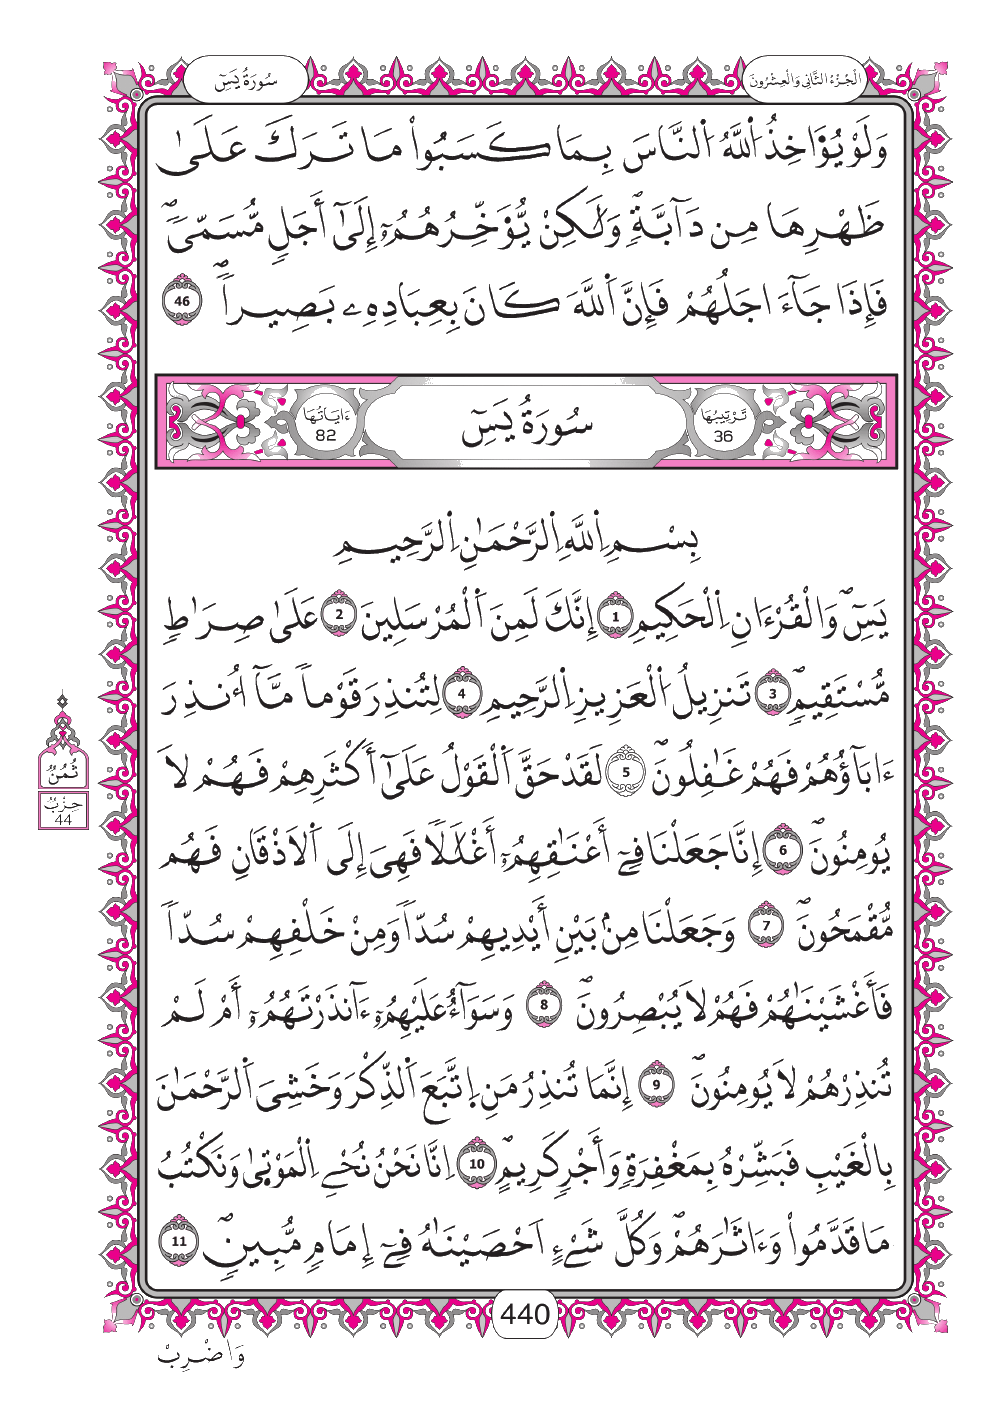 الْجُزْءُ الثَّانِي وَالْعِشْرُونَ
سُورَةُ يَسِٓ
وَلَوْ يُؤَاخِذُ اُ۬للَّهُ اُ۬لنَّاسَ بِمَا كَسَبُواْ مَا تَرَكَ عَلَىٰ
ظَهْرِهَا مِن دَآبَّةٖۖ وَلَٰكِنْ يُّؤَخِّرُهُمُۥٓ إِلَىٰٓ أَجَلٖ مُّسَمّىٗۖ
فَإِذَا جَآءَ اجَلُهُمْ فَإِنَّ اَ۬للَّهَ كَانَ بِعِبَادِهِۦ بَصِيراٗۖ 46
تَرْتِيبُهَا 36
سُورَةُ يَسِٓ
ءَايَاتُهَا 82
بِسْمِ اِ۬للَّهِ اِ۬لرَّحْمَٰنِ اِ۬لرَّحِيمِ
يَسِٓۖ وَالْقُرْءَانِ اِ۬لْحَكِيمِ 1 إِنَّكَ لَمِنَ اَ۬لْمُرْسَلِينَ 2 عَلَىٰ صِرَٰطٖ
مُّسْتَقِيمٖۖ 3 تَنزِيلُ اُ۬لْعَزِيزِ اِ۬لرَّحِيمِ 4 لِتُنذِرَ قَوْماٗ مَّآ أُنذِرَ
ءَابَآؤُهُمْ فَهُمْ غَٰفِلُونَۖ 5 لَقَدْ حَقَّ اَ۬لْقَوْلُ عَلَىٰٓ أَكْثَرِهِمْ فَهُمْ لَا
يُومِنُونَۖ 6 إِنَّا جَعَلْنَا فِےٓ أَعْنَٰقِهِمُۥٓ أَغْلَٰلاٗ فَهِيَ إِلَى اَ۬لَاذْقَانِ فَهُم
مُّقْمَحُونَۖ 7 وَجَعَلْنَا مِنۢ بَيْنِ أَيْدِيهِمْ سُدّاٗ وَمِنْ خَلْفِهِمْ سُدّاٗ
فَأَغْشَيْنَٰهُمْ فَهُمْ لَا يُبْصِرُونَۖ 8 وَسَوَآءٌ عَلَيْهِمُۥٓ ءَآنذَرْتَهُمُۥٓ أَمْ لَمْ
تُنذِرْهُمْ لَا يُومِنُونَۖ 9 إِنَّمَا تُنذِرُ مَنِ اِ۪تَّبَعَ اَ۬لذِّكْرَ وَخَشِيَ اَ۬لرَّحْمَٰنَ
بِالْغَيْبِ فَبَشِّرْهُ بِمَغْفِرَةٖ وَأَجْرٖ كَرِيمٍۖ 10 اِنَّا نَحْنُ نُحْيِ اِ۬لْمَوْتَىٰ وَنَكْتُبُ
مَا قَدَّمُواْ وَءَاثَٰرَهُمْۖ وَكُلَّ شَےْءٍ اَحْصَيْنَٰهُ فِےٓ إِمَامٖ مُّبِينٖۖ 11
ثُمُنُ
حِزْبُ
44
440
وَاضْرِبْ